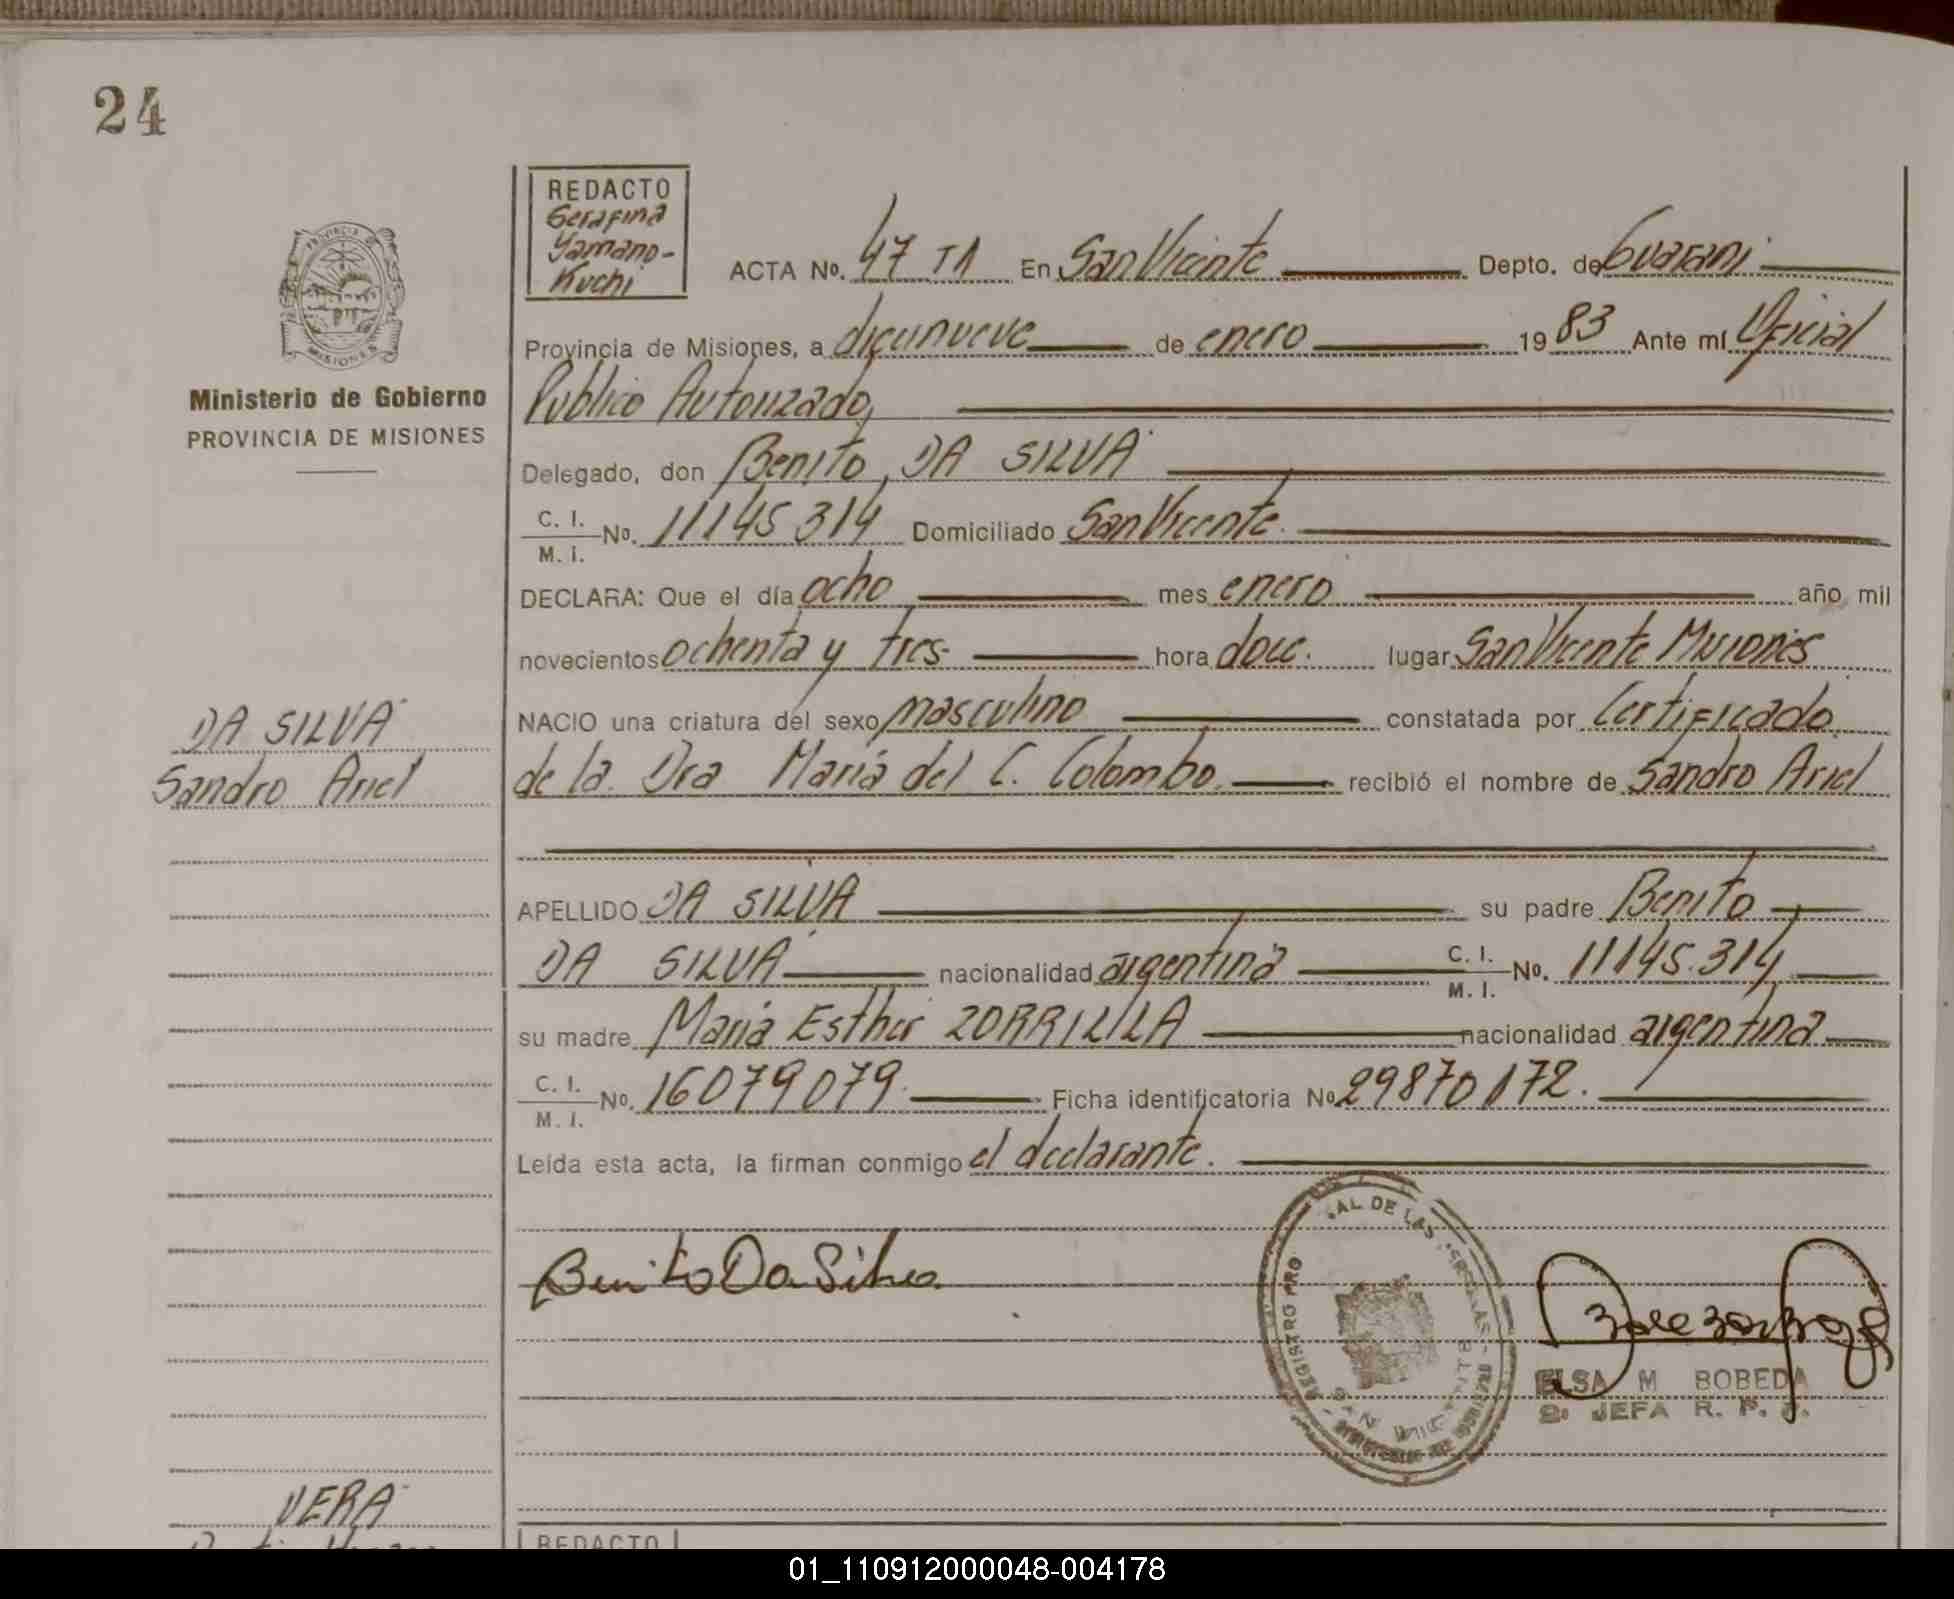 24
PROVINCIA DE
MISIONES
Ministerio de Gobierno
PROVINCIA DE MISIONES
REDACTO
Serafina
Yamano-
Kuchi
ACTA No. 47 T1 En San Vicente Depto. de Guarani
Provincia de Misiones, a diecinueve de enero 1983 Ante mí Oficial
Publico Autorizado,
Delegado, don Benito, DA SILVA
C. I.
M. I. No. 11145 314 Domiciliado San Vicente.
DECLARA: Que el día ocho mes enero año mil
novecientos ochenta y tres- hora doce. lugar San Vicente Misiones
NACIO una criatura del sexo masculino constatada por Certificado
de la Dra María del C. Colombo. recibió el nombre de Sandro Ariel
DA SILVA
Sandro Ariel
APELLIDO DA SILVA su padre Benito
DA SILVA nacionalidad argentina C. I.
M. I. No. 11145.314
su madre Maria Esther ZORRILLA nacionalidad argentina
C. I.
M. I. No. 16079079. Ficha identificatoria No 29870172.
Leída esta acta, la firman conmigo el declarante.
Benito Da Silva
REGISTRO PRO AL DE LAS
ELSA M BOBEDA
JEFA R. P. 
VERA
REDACTO
01_110912000048-004178